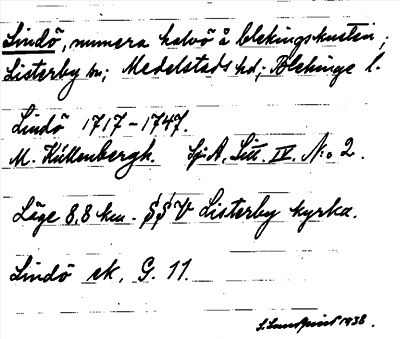 Lindö, numera halvö å blekingskusten;
Listerby sn; Medelstads hd; Blekinge l.
Lindö 1717-1747.
M. Küllenbergh. Sj:A. Litt. IV. N:o 2.
Läge 8,8 km. S§V Listerby kyrka.
Lindö ek. G. 11.
S. Lundquist 1938.